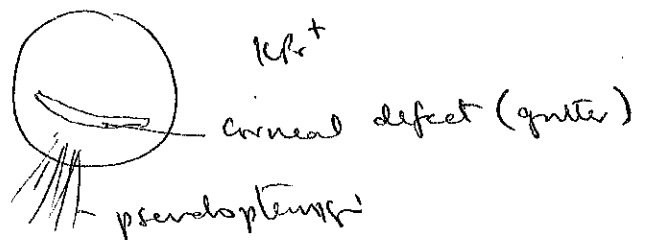 KPs+
corneal defect (gutter)
pseudopterygi